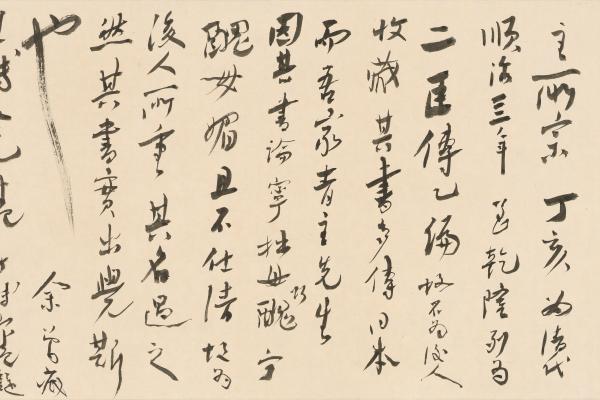 主所宗 丁亥 為清代
順治三年 至乾隆列為
二臣傳乙編 故不為後人
收藏 其書多傳日本
而吾家青主先生
因其書論寧拙毋醜 寧
醜毋媚且不仕清 故為
後人所重 其名過之
然其書實出覺斯
也 余曾藏